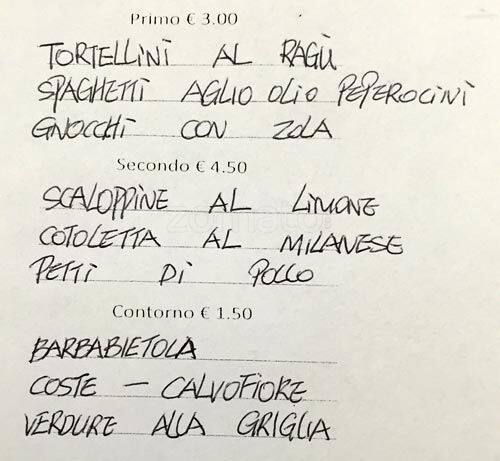 Primo € 3.00
TORTELLINI AL RAGÙ
SPAGHETTI AGLIO OLIO PEPEROCINI
GNOCCHI CON ZOLA
Secondo € 4.50
SCALOPPINE AL LIMONE
COTOLETTA AL MILANESE
PETTI DI POLLO
Contorno € 1.50
BARBABIETOLA
COSTE - CALVOFIORE
VERDURE ALLA GRIGLIA